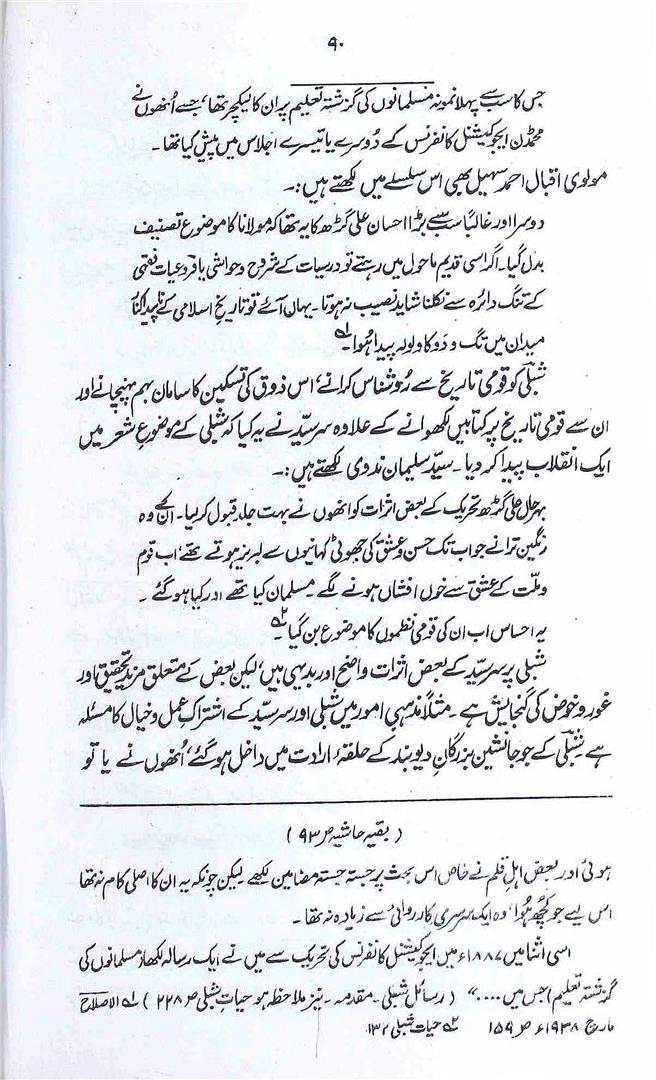 ۹۰
جس کا سب سے پہلا نمونہ مسلمانوں کی گزشتہ تعلیم پر ان کا لیکچر تھا، جسے اُنھوں نے
محمڈن ایجوکیشنل کانفرنس کے دُوسرے یا تیسرے اجلاس میں پیش کیا تھا۔
مولوی اقبال احمد سہیل بھی اس سلسلے میں لکھتے ہیں:۔
دوسرا اور غالباً سب سے بڑا احسان علی گڑھ کا یہ تھا کہ مولانا کا موضوع تصنیف
بدل گیا۔ اگر اسی قدیم ماحول میں رہتے تو درسیات کے شروح و حواشی یا فروعیات فقہی
کے تنگ دائرہ سے نکلنا شاید نصیب نہ ہوتا۔ یہاں آئے تو تاریخ اسلامی کے ناپیدا کنار
میدان میں تگ و دَو کا ولولہ پیدا ہُوا۔ ۱؎
شبلی کو قومی تاریخ سے رُوشناس کرانے، اس ذوق کی تسکین کا سامان بہم پہنچانے اور
ان سے قومی تاریخ پر کتابیں لکھوانے کے علاوہ سرسیّد نے یہ کیا کہ شبلی کے موضوعِ شعر میں
ایک انقلاب پیدا کر دیا۔ سیّد سلیمان ندوی لکھتے ہیں:۔
بہرحال علی گڑھ تحریک کے بعض اثرات کو انھوں نے بہت جلد قبول کر لیا۔ ان کے وہ
رنگین ترانے جو اب تک حسن و عشق کی جھوٹی کہانیوں سے لبریز ہوتے تھے، اب قوم
و ملّت کے عشق سے خوں افشاں ہونے لگے۔ مسلمان کیا تھے اور کیا ہو گئے۔
یہ احساس اب ان کی قومی نظموں کا موضوع بن گیا۔ ۲؎
شبلی پر سرسیّد کے بعض اثرات واضح اور بدیہی ہیں، لیکن بعض کے متعلق مزید تحقیق اور
غور و خوض کی گنجایش ہے۔ مثلاً مذہبی امور میں شبلی اور سرسیّد کے اشتراکِ عمل و خیال کا مسئلہ
ہے شبلی کے جو جانشین بزرگانِ دیوبند کے حلقۂ ارادت میں داخل ہو گئے، اُنھوں نے یا تو
(بقیہ حاشیہ ص ۹۳)
ہوئی اور بعض اہلِ قلم نے خاص اس بحث پر جستہ جستہ مضامین لکھے لیکن چونکہ یہ ان کا اصلی کام نہ تھا
اس لیے جو کچھ ہُوا، وہ ایک سرسری کارروائی سے زیادہ نہ تھا۔
اسی اثنا میں ۱۸۸۷ء میں ایجوکیشنل کانفرنس کی تحریک سے میں نے ایک رسالہ لکھا (مسلمانوں کی
گزشتہ تعلیم) جس میں ...." (رسائل شبلی۔ مقدمہ۔ نیز ملاحظہ ہو حیاتِ شبلی ص ۲۲۸) ۱؎ الاصلاح
مارچ ۱۹۳۸ء ص ۱۵۹ ۲؎ حیات شبلی ۱۳۲